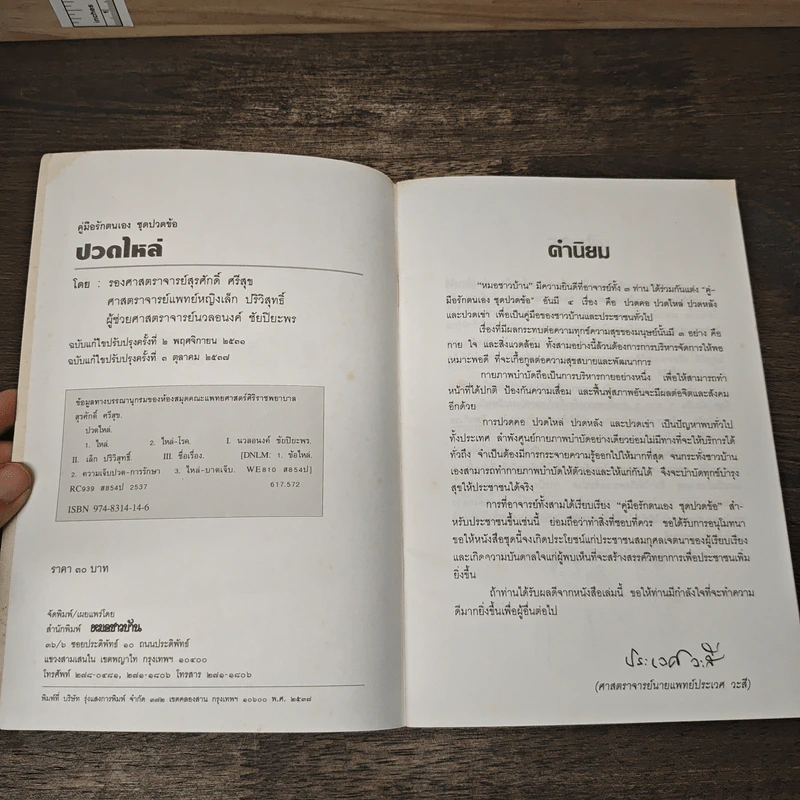 inches
คู่มือรักตนเอง ชุดปวดข้อ
ปวดไหล่
โดย : รองศาสตราจารย์สุรศักดิ์ ศรีสุข
ศาสตราจารย์แพทย์หญิงเล็ก ปริวิสุทธิ์
ผู้ช่วยศาสตราจารย์นวลอนงค์ ชัยปิยะพร
ฉบับแก้ไขปรับปรุงครั้งที่ ๒ พฤศจิกายน ๒๕๓๑
ฉบับแก้ไขปรับปรุงครั้งที่ ๓ ตุลาคม ๒๕๓๗
ข้อมูลทางบรรณานุกรมของห้องสมุดคณะแพทยศาสตร์ศิริราชพยาบาล
สุรศักดิ์ ศรีสุข.
ปวดไหล่.
1. ไหล่. 2. ไหล่-โรค. I. นวลอนงค์ ชัยปิยะพร.
II. เล็ก ปริวิสุทธิ์. III. ชื่อเรื่อง. [DNLM: 1. ข้อไหล่.
2. ความเจ็บปวด-การรักษา 3. ไหล่-บาดเจ็บ. WE 810 ส854ป]
RC939 ส854ป 2537 617.572
ISBN 974-8314-14-6
ราคา ๓๐ บาท
จัดพิมพ์/เผยแพร่โดย
สำนักพิมพ์ หมอชาวบ้าน
๓๖/๖ ซอยประดิพัทธ์ ๑๐ ถนนประดิพัทธ์
แขวงสามเสนใน เขตพญาไท กรุงเทพฯ ๑๐๔๐๐
โทรศัพท์ ๒๗๘-๐๔๘๑, ๒๗๑-๑๘๐๖ โทรสาร ๒๗๑-๑๘๐๖
พิมพ์ที่ บริษัท รุ่งแสงการพิมพ์ จำกัด ๓๗๒ เขตคลองสาน กรุงเทพฯ ๑๐๖๐๐ พ.ศ. ๒๕๓๗
คำนิยม
"หมอชาวบ้าน" มีความยินดีที่อาจารย์ทั้ง ๓ ท่าน ได้ร่วมกันแต่ง "คู่-
มือรักตนเอง ชุดปวดข้อ" อันมี ๔ เรื่อง คือ ปวดคอ ปวดไหล่ ปวดหลัง
และปวดเข่า เพื่อเป็นคู่มือของชาวบ้านและประชาชนทั่วไป
เรื่องที่มีผลกระทบต่อความทุกข์ความสุขของมนุษย์นั้นมี ๓ อย่าง คือ
กาย ใจ และสิ่งแวดล้อม ทั้งสามอย่างนี้ล้วนต้องการการบริหารจัดการให้พอ
เหมาะพอดี ที่จะเกื้อกูลต่อความสุขสบายและพัฒนาการ
กายภาพบำบัดถือเป็นการบริหารกายอย่างหนึ่ง เพื่อให้สามารถทำ
หน้าที่ได้ปกติ ป้องกันความเสื่อม และฟื้นฟูสภาพอันจะมีผลต่อจิตและสังคม
อีกด้วย
การปวดคอ ปวดไหล่ ปวดหลัง และปวดเข่า เป็นปัญหาพบทั่วไป
ทั้งประเทศ ลำพังศูนย์กายภาพบำบัดอย่างเดียวย่อมไม่มีทางที่จะให้บริการได้
ทั่วถึง จำเป็นต้องมีการกระจายความรู้ออกไปให้มากที่สุด จนกระทั่งชาวบ้าน
เองสามารถทำกายภาพบำบัดให้ตัวเองและให้แก่กันได้ จึงจะบำบัดทุกข์บำรุง
สุขให้ประชาชนได้จริง
การที่อาจารย์ทั้งสามได้เรียบเรียง "คู่มือรักตนเอง ชุดปวดข้อ" สำ-
หรับประชาชนขึ้นเช่นนี้ ย่อมถือว่าทำสิ่งที่ชอบที่ควร ขอได้รับการอนุโมทนา
ขอให้หนังสือชุดนี้จงเกิดประโยชน์แก่ประชาชนสมกุศลเจตนาของผู้เรียบเรียง
และเกิดความบันดาลใจแก่ผู้พบเห็นที่จะสร้างสรรค์วิทยาการเพื่อประชาชนเพิ่ม
ยิ่งขึ้น
ถ้าท่านได้รับผลดีจากหนังสือเล่มนี้ ขอให้ท่านมีกำลังใจที่จะทำความ
ดีมากยิ่งขึ้นเพื่อผู้อื่นต่อไป
ประเวศ วะสี
(ศาสตราจารย์นายแพทย์ประเวศ วะสี)